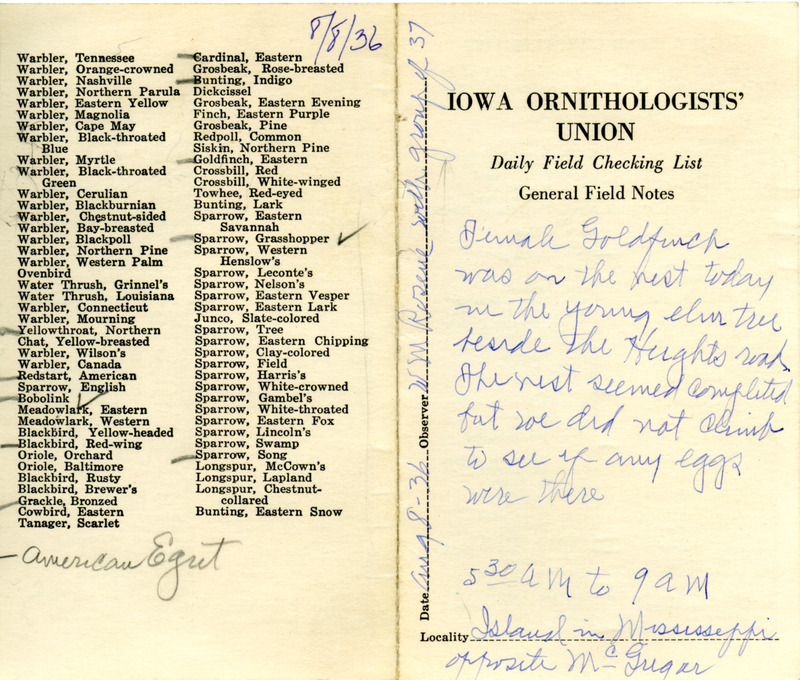 8/8/36
Warbler, Tennessee
Warbler, Orange-crowned
Warbler, Nashville
Warbler, Northern Parula
Warbler, Eastern Yellow
Warbler, Magnolia
Warbler, Cape May
Warbler, Black-throated
Blue
Warbler, Myrtle
Warbler, Black-throated
Green
Warbler, Cerulian
Warbler, Blackburnian
Warbler, Chestnut-sided
Warbler, Bay-breasted
Warbler, Blackpoll
Warbler, Northern Pine
Warbler, Western Palm
Ovenbird
Water Thrush, Grinnel's
Water Thrush, Louisiana
Warbler, Connecticut
Warbler, Mourning
Yellowthroat, Northern
Chat, Yellow-breasted
Warbler, Wilson's
Warbler, Canada
Redstart, American
Sparrow, English
Bobolink
Meadowlark, Eastern
Meadowlark, Western
Blackbird, Yellow-headed
Blackbird, Red-wing
Oriole, Orchard
Oriole, Baltimore
Blackbird, Rusty
Blackbird, Brewer's
Grackle, Bronzed
Cowbird, Eastern
Tanager, Scarlet
Cardinal, Eastern
Grosbeak, Rose-breasted
Bunting, Indigo
Dickcissel
Grosbeak, Eastern Evening
Finch, Eastern Purple
Grosbeak, Pine
Redpoll, Common
Siskin, Northern Pine
Goldfinch, Eastern
Crossbill, Red
Crossbill, White-winged
Towhee, Red-eyed
Bunting, Lark
Sparrow, Eastern
Savannah
Sparrow, Grasshopper ✓
Sparrow, Western
Henslow's
Sparrow, Leconte's
Sparrow, Nelson's
Sparrow, Eastern Vesper
Sparrow, Eastern Lark
Junco, Slate-colored
Sparrow, Tree
Sparrow, Eastern Chipping
Sparrow, Clay-colored
Sparrow, Field
Sparrow, Harris's
Sparrow, White-crowned
Sparrow, Gambel's
Sparrow, White-throated
Sparrow, Eastern Fox
Sparrow, Lincoln's
Sparrow, Swamp
Sparrow, Song
Longspur, McCown's
Longspur, Lapland
Longspur, Chestnut-
collared
Bunting, Eastern Snow
- American Egret
Date Aug 8-36 Observer W M Rosene with group of 37
IOWA ORNITHOLOGISTS'
UNION
Daily Field Checking List
General Field Notes
Female Goldfinch
was on the nest today
in the young elm tree
beside the Heights road.
The nest seemed completed
but we did not climb
to see if any eggs
were there
5 30 AM to 9 AM
Locality Island in Mississippi
opposite McGregor